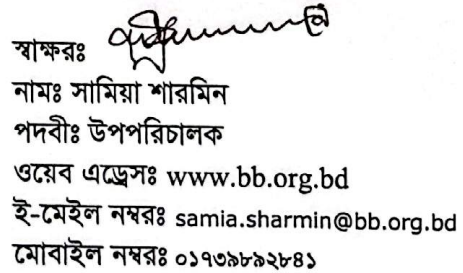 স্বাক্ষরঃ
নামঃ সামিয়া শারমিন
পদবীঃ উপপরিচালক
ওয়েব এড্রেসঃ www.bb.org.bd
ই-মেইল নম্বরঃ samia.sharmin@bb.org.bd
মোবাইল নম্বরঃ ০১৭৩৯৮৯২৮৪১